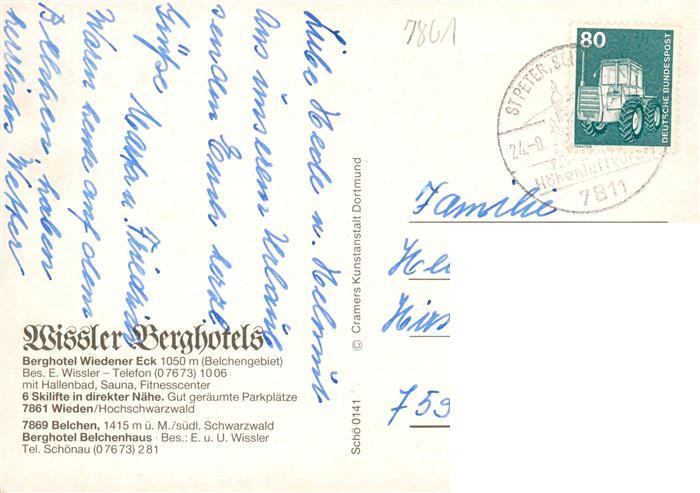 Liebe Heide u. Helmut
Aus unserem Urlaub
senden Euch herzl.
Grüße Marta u. Friedrich
Waren heute auf dem
Belchen, haben
herrliches Wetter
7861
80
DEUTSCHE BUNDESPOST
TRAKTOR
ST. PETER, SC
24.-8.
Höhenluftkurort
7811
Familie
He
Hirs
759
© Cramers Kunstanstalt Dortmund
Schö 0141
Wissler Berghotels
Berghotel Wiedener Eck 1050 m (Belchengebiet)
Bes. E. Wissler – Telefon (0 76 73) 10 06
mit Hallenbad, Sauna, Fitnesscenter
6 Skilifte in direkter Nähe. Gut geräumte Parkplätze
7861 Wieden/Hochschwarzwald
7869 Belchen, 1415 m ü. M./südl. Schwarzwald
Berghotel Belchenhaus · Bes.: E. u. U. Wissler
Tel. Schönau (0 76 73) 2 81